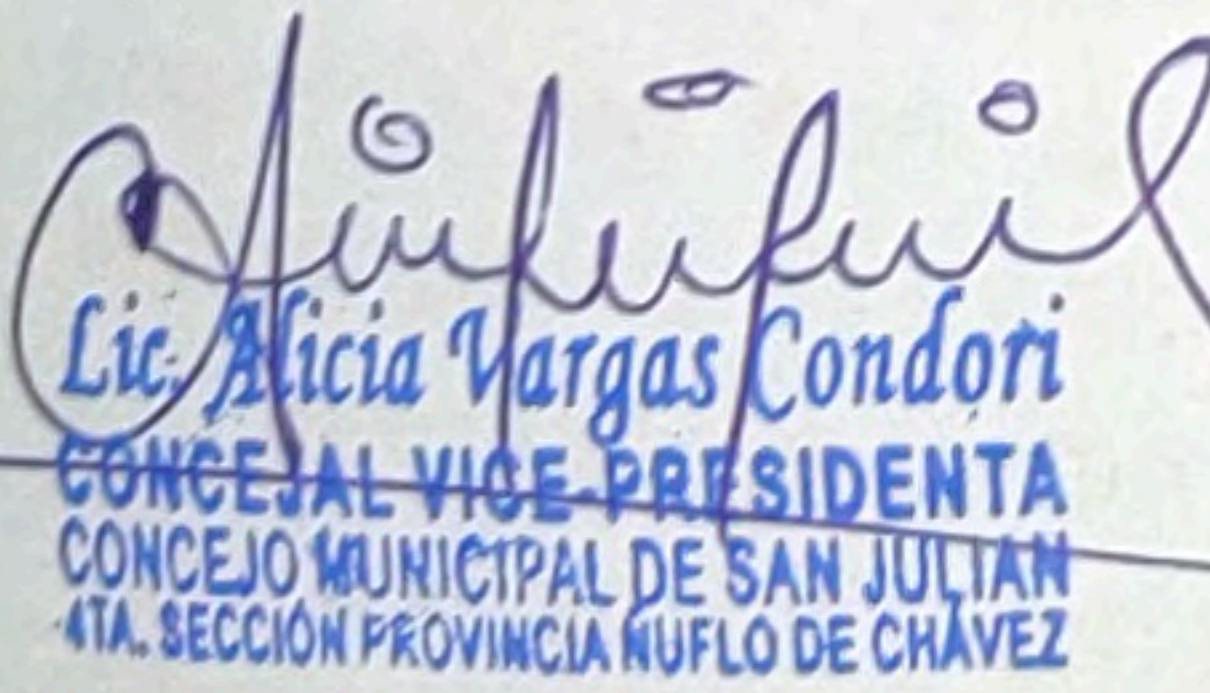 Lic. Alicia Vargas Condori
CONCEJAL VICE-PRESIDENTA
CONCEJO MUNICIPAL DE SAN JULIAN
4TA. SECCIÓN PROVINCIA ÑUFLO DE CHÁVEZ